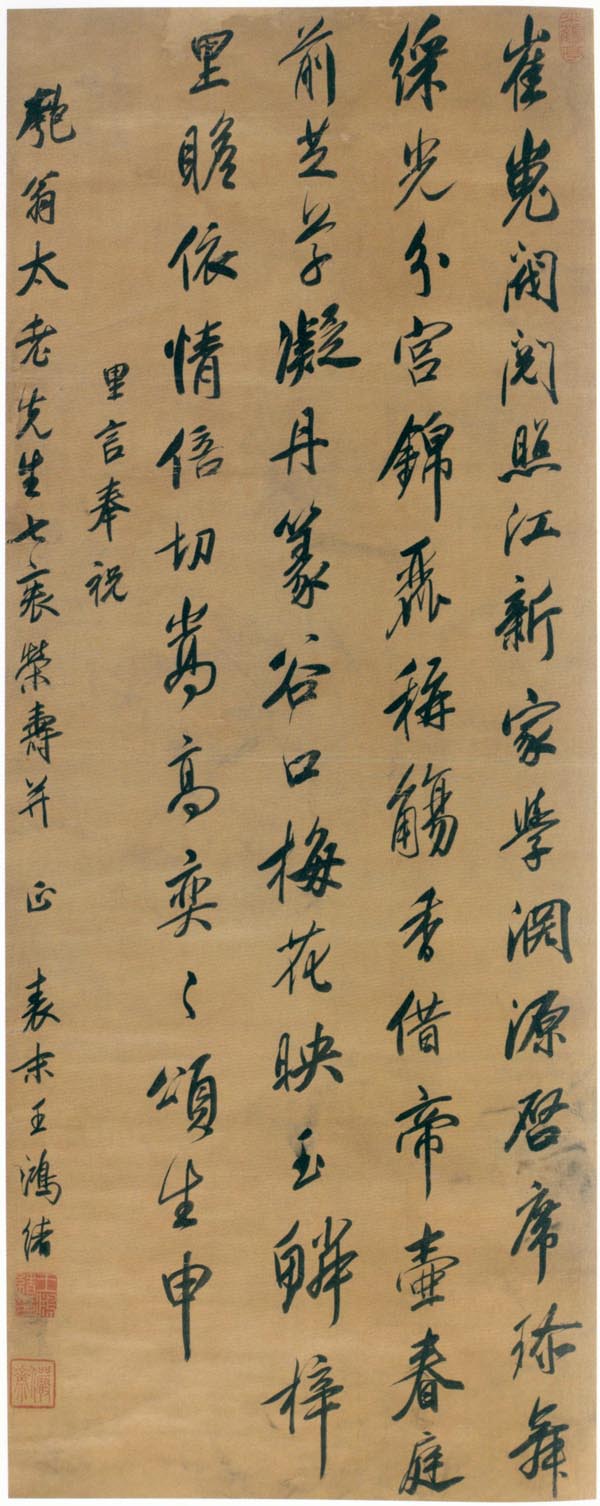 崔嵬閥閱照江新家學淵源啓席珍舞
綵光分宮錦麗稱觴香借帝壺春庭
前芝草凝丹篆谷口梅花映玉鱗梓
里瞻依情倍切嵩高奕〻頌生申
里言奉祝
匏翁太老先生七袠榮壽并 正 表末王鴻緒
王鴻緒印
儼齋